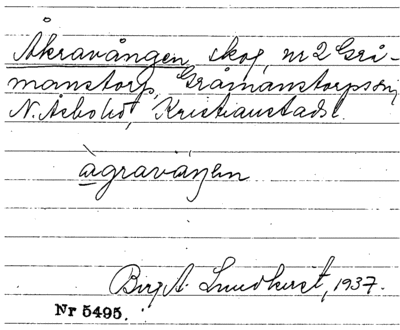 Åkravången, skog, nr 2 Grå-
manstorp, Gråmanstorps sn,
N. Åsbo hd, Kristianstads l.
àgraváŋen
Birg. A. Lundkvist, 1937.
Nr 5495.